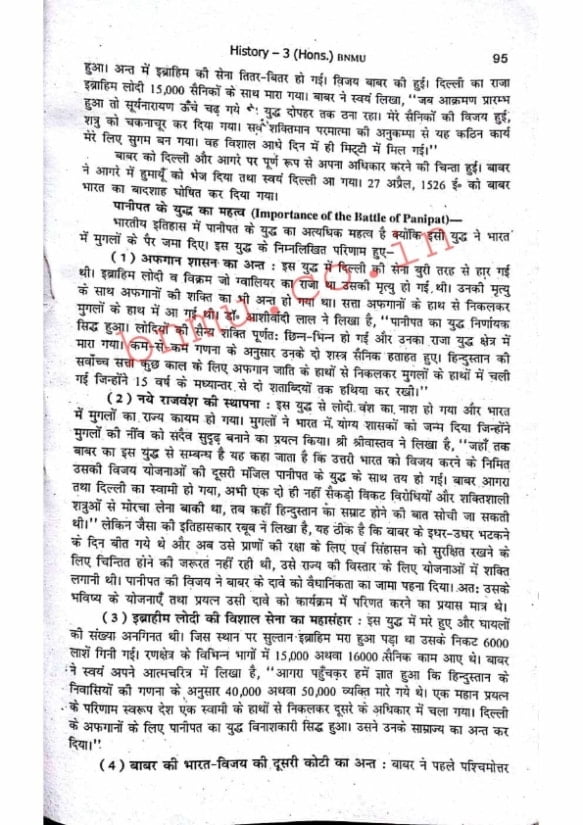 History – 3 (Hons.) BNMU 95
हुआ। अन्त में इब्राहिम की सेना तितर-बितर हो गई। विजय बाबर की हुई। दिल्ली का राजा
इब्राहिम लोदी 15,000 सैनिकों के साथ मारा गया। बाबर ने स्वयं लिखा, "जब आक्रमण प्रारम्भ
हुआ तो सूर्यनारायण ऊँचे चढ़ गये थे। युद्ध दोपहर तक ठना रहा। मेरे सैनिकों की विजय हुई,
शत्रु को चकनाचूर कर दिया गया। सर्व शक्तिमान परमात्मा की अनुकम्पा से यह कठिन कार्य
मेरे लिए सुगम बन गया। वह विशाल आधे दिन में ही मिट्टी में मिल गई।"
बाबर को दिल्ली और आगरे पर पूर्ण रूप से अपना अधिकार करने की चिन्ता हुई। बाबर
ने आगरे में हुमायूँ को भेज दिया तथा स्वयं दिल्ली आ गया। 27 अप्रैल, 1526 ई॰ को बाबर
भारत का बादशाह घोषित कर दिया गया।
पानीपत के युद्ध का महत्व (Importance of the Battle of Panipat)—
भारतीय इतिहास में पानीपत के युद्ध का अत्यधिक महत्व है क्योंकि इसी युद्ध ने भारत
में मुगलों के पैर जमा दिए। इस युद्ध के निम्नलिखित परिणाम हुए-
(1) अफगान शासन का अन्त : इस युद्ध में दिल्ली की सेना बुरी तरह से हार गई
थी। इब्राहिम लोदी व विक्रम जो ग्वालियर का राजा था उसकी मृत्यु हो गई थी। उनकी मृत्यु
के साथ अफगानों की शक्ति का भी अन्त हो गया था। सत्ता अफगानों के हाथ से निकलकर
मुगलों के हाथ में आ गई थी। डॉ॰ आशीर्वादी लाल ने लिखा है, "पानीपत का युद्ध निर्णायक
सिद्ध हुआ। लोदियों की सैन्य शक्ति पूर्णतः छिन्न-भिन्न हो गई और उनका राजा युद्ध क्षेत्र में
मारा गया। कम से कम गणना के अनुसार उनके दो शस्त्र सैनिक हताहत हुए। हिन्दुस्तान की
सर्वोच्च सत्ता कुछ काल के लिए अफगान जाति के हाथों से निकलकर मुगलों के हाथों में चली
गई जिन्होंने 15 वर्ष के मध्यान्तर से दो शताब्दियों तक हथिया कर रखी।"
(2) नये राजवंश की स्थापना : इस युद्ध से लोदी वंश का नाश हो गया और भारत
में मुगलों का राज्य कायम हो गया। मुगलों ने भारत में योग्य शासकों को जन्म दिया जिन्होंने
मुगलों की नींव को सदैव सुदृढ़ बनाने का प्रयत्न किया। श्री श्रीवास्तव ने लिखा है, "जहाँ तक
बाबर का इस युद्ध से सम्बन्ध है यह कहा जाता है कि उत्तरी भारत को विजय करने के निमित
उसकी विजय योजनाओं की दूसरी मंजिल पानीपत के युद्ध के साथ तय हो गई। बाबर आगरा
तथा दिल्ली का स्वामी हो गया, अभी एक दो ही नहीं सैकड़ों विकट विरोधियों और शक्तिशाली
शत्रुओं से मोरचा लेना बाकी था, तब कहीं हिन्दुस्तान का सम्राट होने की बात सोची जा सकती
थी।" लेकिन जैसा की इतिहासकार रबूब ने लिखा है, यह ठीक है कि बाबर के इधर-उधर भटकने
के दिन बीत गये थे और अब उसे प्राणों की रक्षा के लिए एवं सिंहासन को सुरक्षित रखने के
लिए चिन्तित होने की जरूरत नहीं रही थी, उसे राज्य की विस्तार के लिए योजनाओं में शक्ति
लगानी थी। पानीपत की विजय ने बाबर के दावे को वैधानिकता का जामा पहना दिया। अतः उसके
भविष्य के योजनाएँ तथा प्रयत्न उसी दावे को कार्यक्रम में परिणत करने का प्रयास मात्र थे।
(3) इब्राहीम लोदी की विशाल सेना का महासंहार : इस युद्ध में मरे हुए और घायलों
की संख्या अनगिनत थी। जिस स्थान पर सुल्तान इब्राहिम मरा हुआ पड़ा था उसके निकट 6000
लाशें गिनी गई। रणक्षेत्र के विभिन्न भागों में 15,000 अथवा 16000 सैनिक काम आए थे। बाबर
ने स्वयं अपने आत्मचरित्र में लिखा है, "आगरा पहुँचकर हमें ज्ञात हुआ कि हिन्दुस्तान के
निवासियों की गणना के अनुसार 40,000 अथवा 50,000 व्यक्ति मारे गये थे। एक महान प्रयत्न
के परिणाम स्वरूप देश एक स्वामी के हाथों से निकलकर दूसरे के अधिकार में चला गया। दिल्ली
के अफगानों के लिए पानीपत का युद्ध विनाशकारी सिद्ध हुआ। उसने उनके साम्राज्य का अन्त कर
दिया।"
(4) बाबर की भारत-विजय की दूसरी कोटी का अन्त : बाबर ने पहले पश्चिमोत्तर
bnmu.co.in